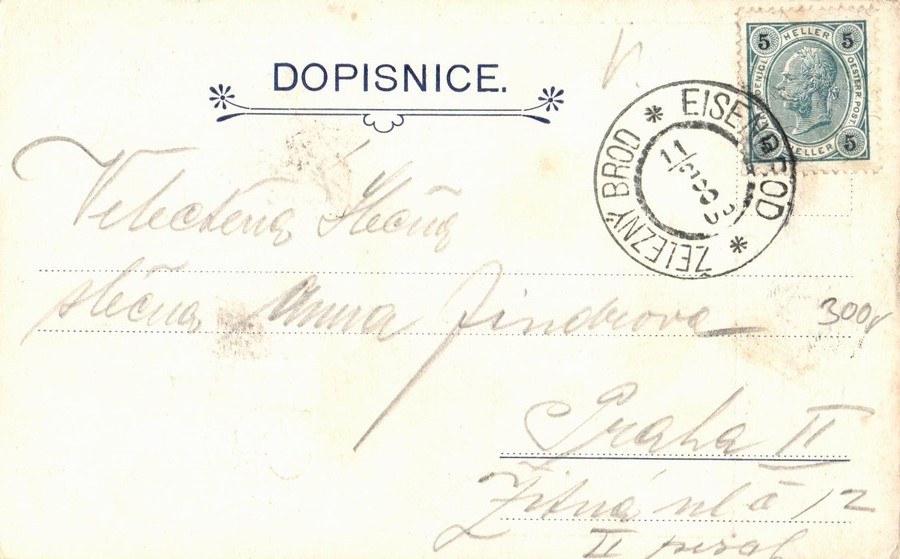 DOPISNICE.
5 HELLER 5
OESTERR. POST.
5 HELLER 5
EISENBROD * ŽELEZNÝ BROD *
11
Velectěná Slečna
slečna Anna Jindrova
300,
Praha II
Žitná ul č 12
II